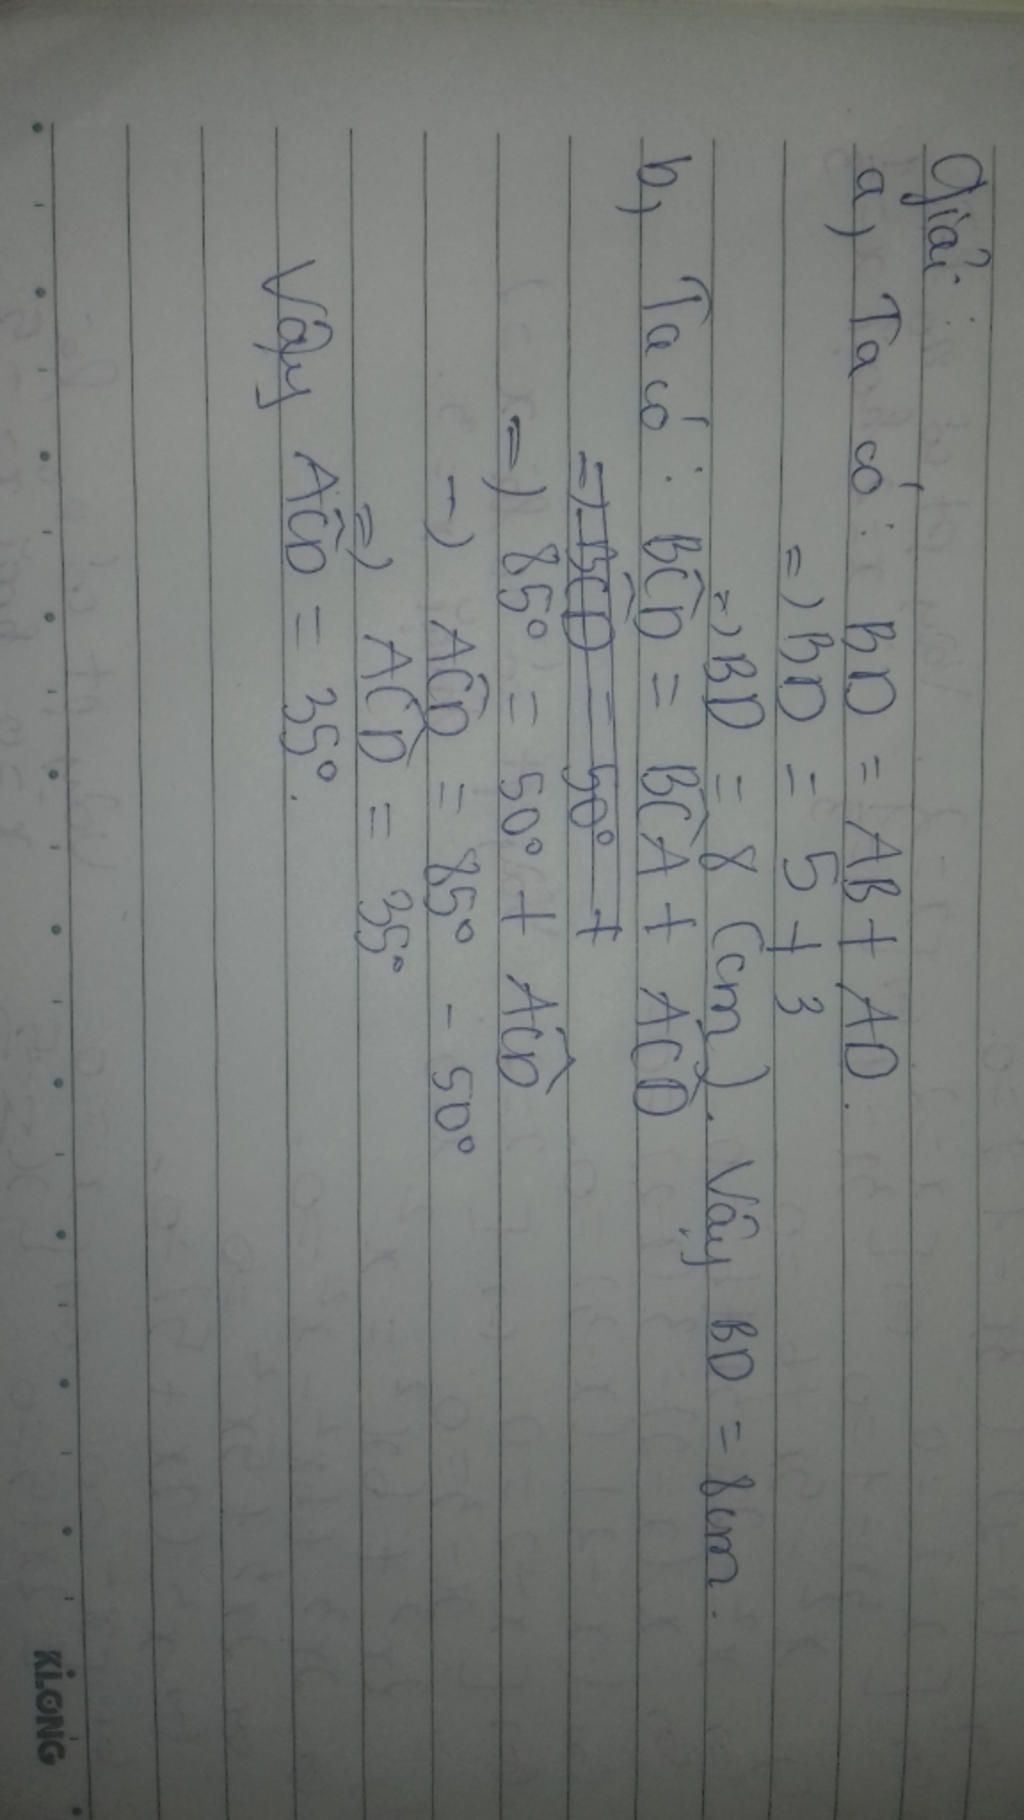 Giải:
a, Ta có: BD = AB + AD.
=) BD = 5 + 3
=) BD = 8 (cm). Vậy BD = 8cm.
b, Ta có: BĈD = BĈA + AĈD
=) BĈD = 50° +
=) 85° = 50° + AĈD
=) AĈD = 85° - 50°
=) AĈD = 35°
Vậy AĈD = 35°.
KLONG